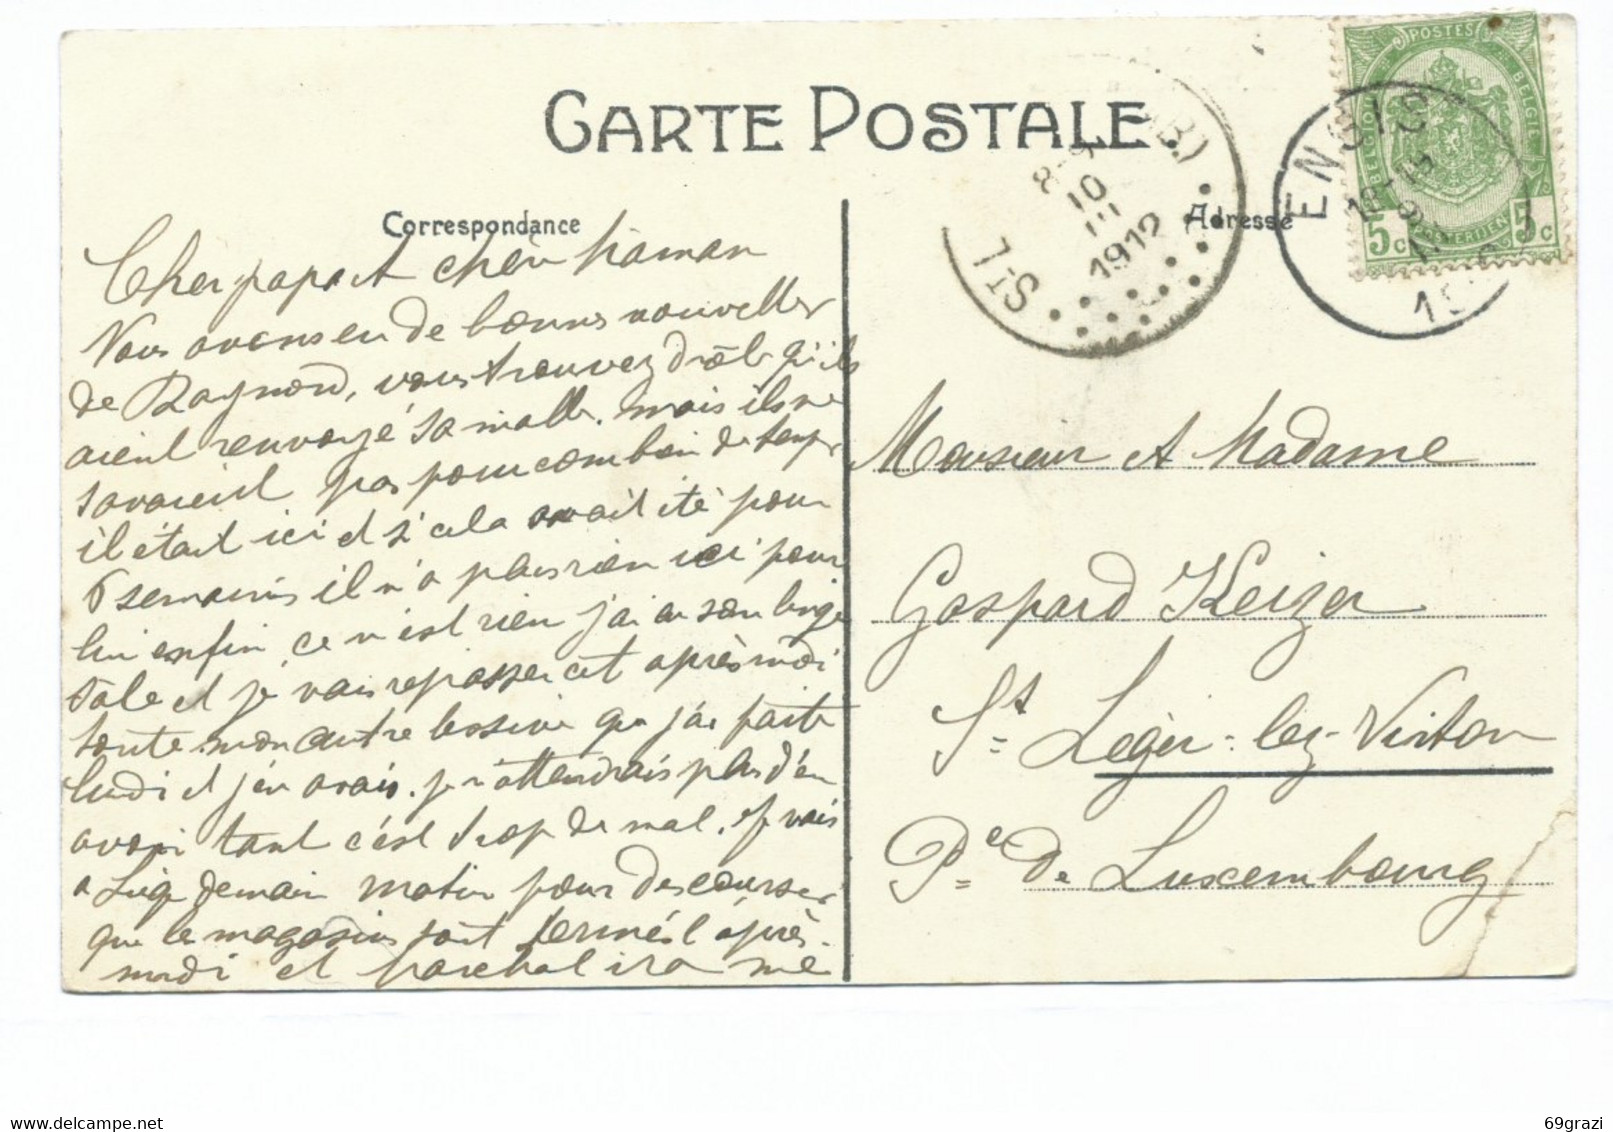 CARTE POSTALE
Correspondance
Adresse
POSTES
BELGIQUE BELGIE
5c 5c
ENGIS
10 III 1912
8-9
ST-L B.)
Cher papa et chèr Maman
Vous avons eu de bonnes nouvelles
de Raymond, vous trouvez drôle qu'ils
aient renvoyé sa malle. mais ils ne
savaient pas pour combien de temps
il était ici et si cela avait été pour
6 semaines il n'a plus rien ici pour
lui enfin, ce n'est rien j'ai eu son linge
sale et je vais repasser cet après midi
toute mon autre lessive que j'ai faite
lundi et j'en avais. je n'attendrais plus d'en
avoir tant c'est trop de mal. je vais
a Liége demain matin pour des courses
que les magasins sont fermés l'après-
midi et ira me
Monsieur et Madame
Gaspard Keizer
St Léger-lez-Virton
Pce de Luxembourg
69grazi